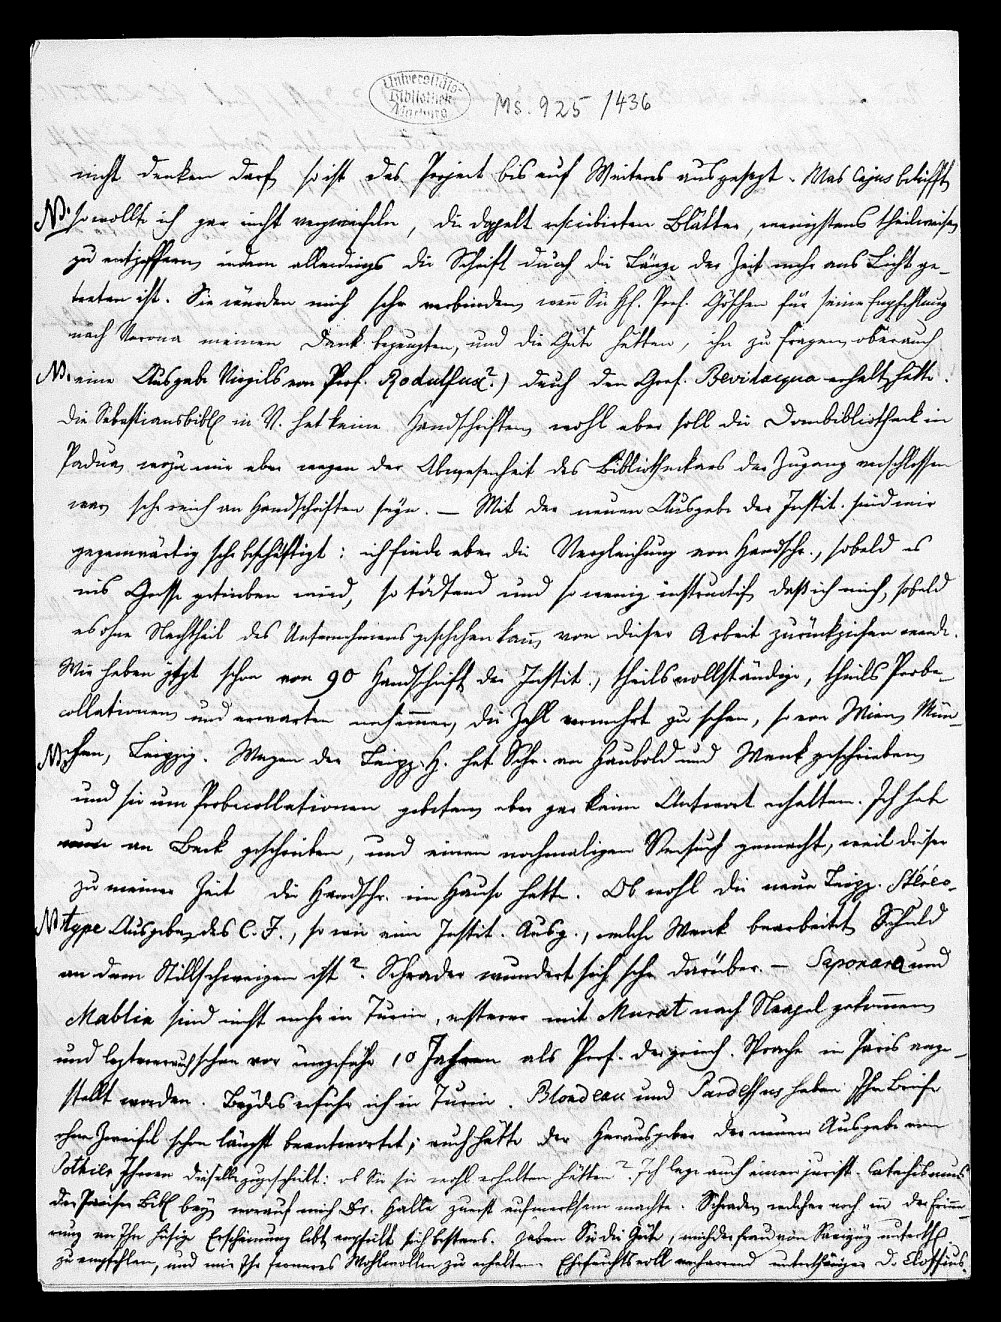 Universitäts-
Bibliothek
Marburg
Ms. 925 /436
nicht denken darf, so ist das Project bis auf Weiteres ausgesezt. Was Cajus betrifft,
N. so wollte ich gar nicht verzweifeln, die doppelt rescribirten Blätter, wenigstens theilweise,
zu entziffern, indem allerdings die Schrift durch die Länge der Zeit mehr ans Licht ge-
treten ist. Sie würden mich sehr verbinden, wenn Sie H. Prof. Göschen für seine Empfehlung
nach Verona meinen Dank bezeugten, und die Güte hätten, ihn zu fragen, ob er auch
N. eine Ausgabe Virgils von Prof. Rodulfus?) durch den Graf. Bevilacqua erhalten hätte.
Die Sebastiansbibl. in V. hat keine Handschriften, wohl aber soll die Dombibliothek in
Padua, wozu mir aber wegen der Abwesenheit des Bibliothekars der Zugang verschlossen
war, sehr reich an Handschriften seyn. — Mit der neuen Ausgabe der Instit. sind wir
gegenwärtig sehr beschäftigt: ich finde aber die Vergleichung von Handschr., sobald es
ins Grosse getrieben wird, so tödtend und so wenig instructif, daß ich mich, sobald
es ohne Nachtheil des Unternehmens geschehen kann, von dieser Arbeit zurückziehen werde.
Wir haben jetzt schon von 90 Handschrift. der Instit., theils vollständige, theils Probe-
collationen, und erwarten noch immer, die Zahl vermehrt zu sehen, so von Wien, Mün-
N. chen, Leipzig. Wegen der Leipz. H. hat Schr. an Haubold und Wenk geschrieben,
und sie um Probecollationen gebeten, aber gar keine Antwort erhalten. Ich habe
nun an Beck geschrieben, und einen nochmaligen Versuch gemacht, weil dieser
zu meiner Zeit die Handschr. im Hause hatte. Ob wohl die neue Leipz. Stéréo-
N. type Ausgabe, des C. J., so wie eine Instit. Ausg., welche Wenk bearbeitet, Schuld
an dem Stillschweigen ist? Schrader wundert sich sehr darüber. — Saponara und
Mablin sind nicht mehr in Turin, ersterer mit Murat nach Neapel gekommen,
und lezterer auch schon vor ungefähr 10 Jahren als Prof. der griech. Sprache in Paris ange-
stellt worden. Beydes erfuhr ich in Turin. Blondeau und Pardessus haben Ihre Briefe
ohne Zweifel schon längst beantwortet; auch hätte der Herausgeber der neuen Ausgabe von
Pothier Ihnen dieselbe zugeschickt: ob Sie sie wohl erhalten hätten? Ich lege auch einen jurist. Catechismus
der Pariser Bibl. bey, worauf mich Dr. Halle zuerst aufmerksam machte. Schrader, welcher noch in der Erinne-
rung an Ihre Erscheinung lebt, empfielt sich bestens. Haben Sie die Güte, mich der Frau von Savigny
zu empfehlen, und mir Ihr ferneres Wohlwollen zu erhalten. Ehrfurchtsvoll verharrend unterthäniger D. Clossius.